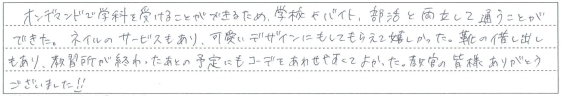 オンデマンドで学科を受けることができるため、学校やバイト、部活と両立して通うことが
できた。ネイルのサービスもあり、可愛いデザインにもしてもらえて嬉しかった。靴の貸し出し
もあり、教習所が終わったあとの予定にもコーデをあわせやすくてよかった。教官の皆様ありがとう
ございました!!